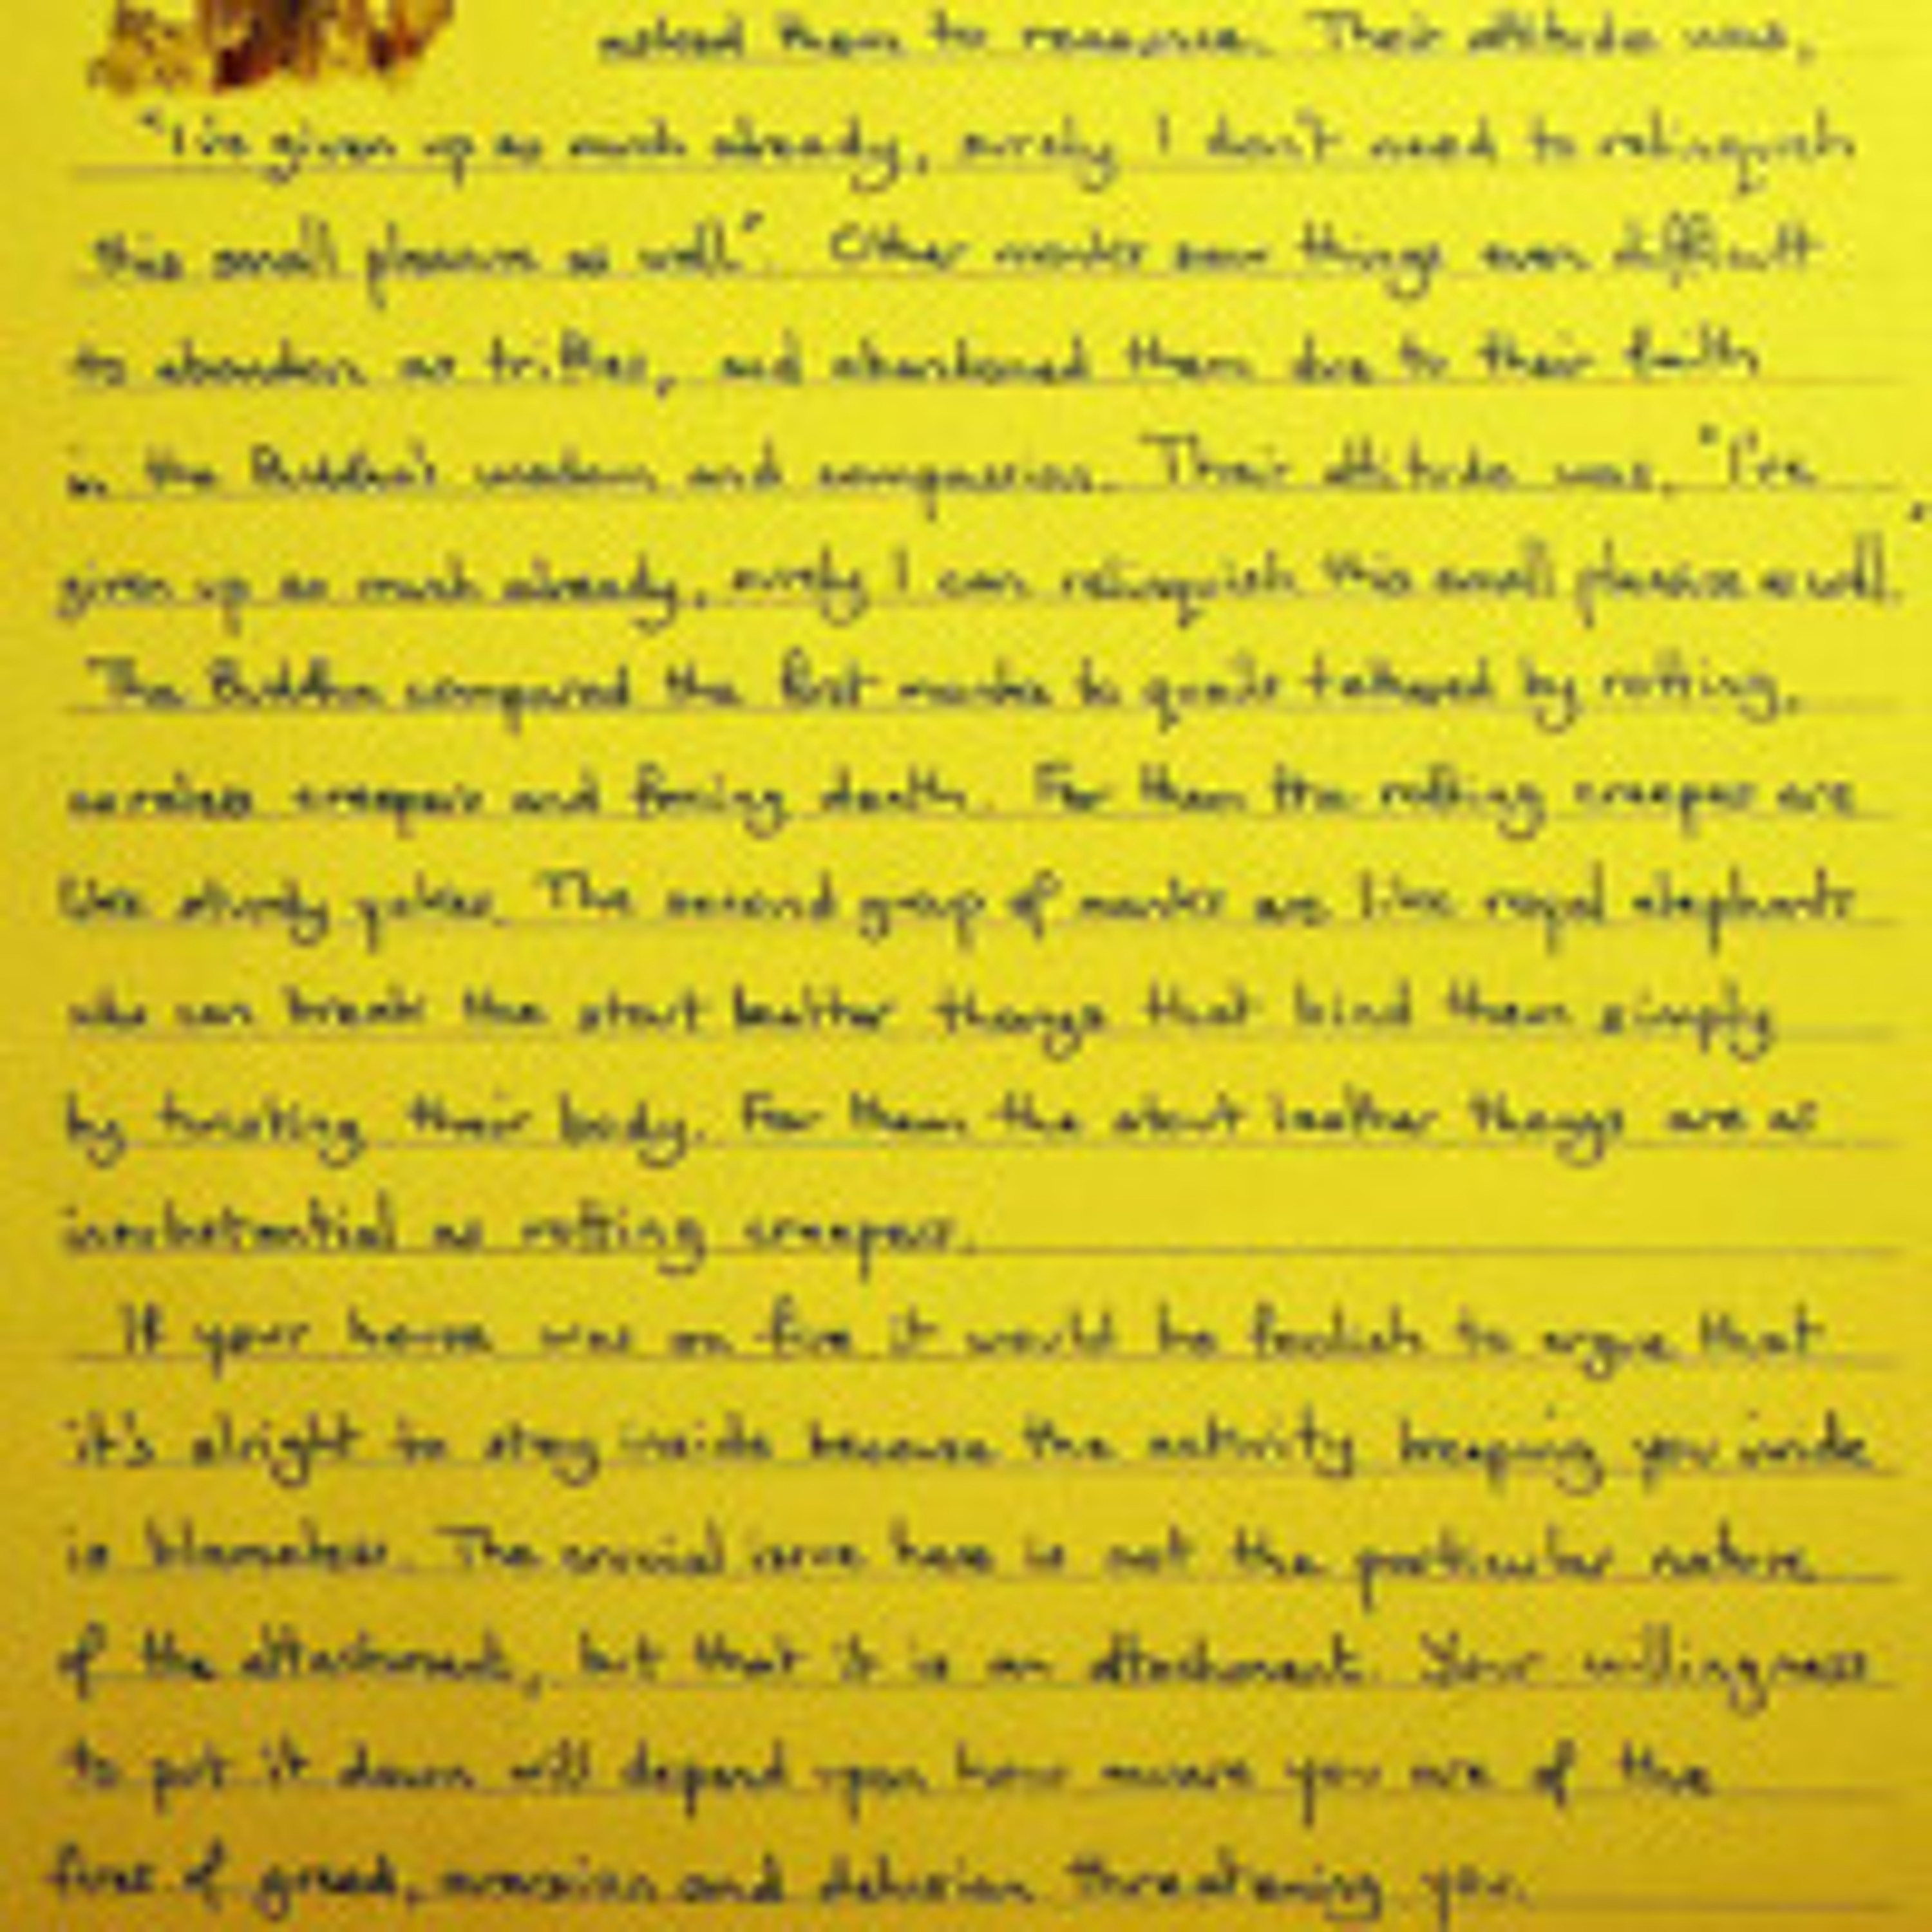 asked them to renounce. Their attitude was,
"I've given up so much already, surely I don't need to relinquish
this small pleasure as well". Other monks saw things even difficult
to abandon as trifles, and abandoned them due to their faith
in the Buddha's wisdom and compassion. Their attitude was, "I've
given up so much already, surely I can relinquish this small pleasure as well.
The Buddha compared the first monks to quails tethered by rotting,
coreless creepers and facing death. For them the rotting creeper are
like sturdy yokes. The second group of monks are like royal elephants
who can break the stout leather thongs that bind them simply
by twisting their body. For them the stout leather thongs are as
insubstantial as rotting creepers.
If your house was on fire it would be foolish to argue that
it's alright to stay inside because the activity keeping you inside
is blameless. The crucial issue here is not the particular nature
of the attachment, but that it is an attachment. Your willingness
to put it down will depend upon how aware you are of the
fires of greed, aversion and delusion threatening you.